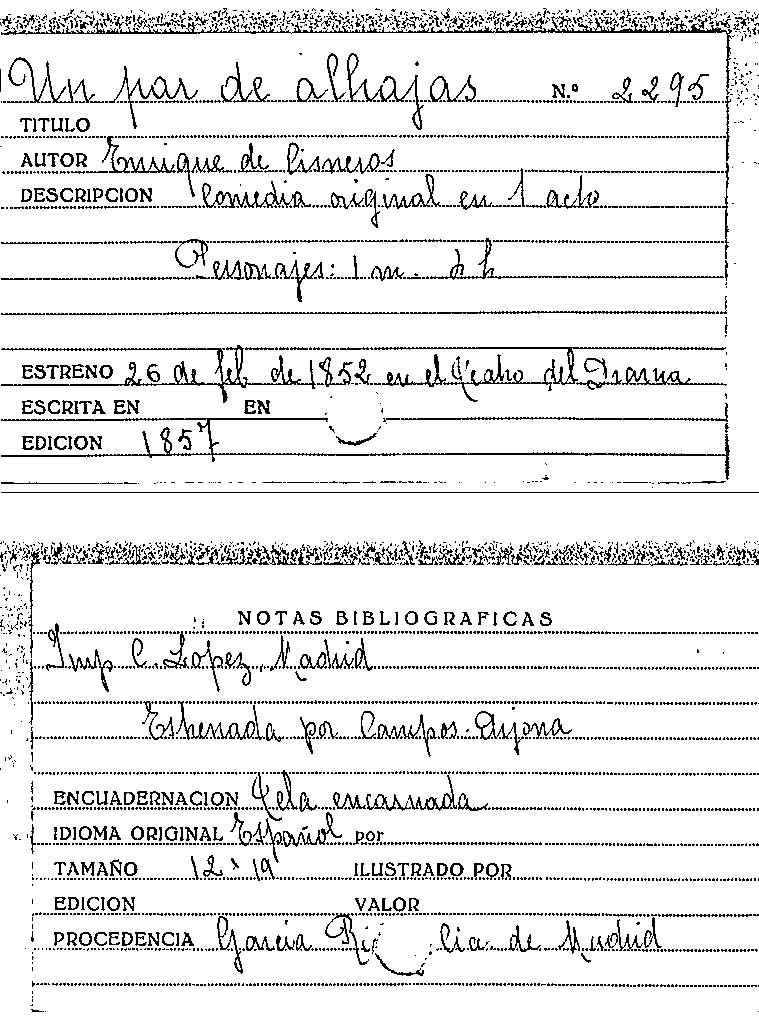 Un par de alhajas N.º 2295
TITULO
AUTOR Enrique de Cisneros
DESCRIPCION Comedia original en 1 acto
Personajes: 1 m. 4 h
ESTRENO 26 de feb de 1852 en el Teatro del Drama
ESCRITA EN EN
EDICION 1857
NOTAS BIBLIOGRAFICAS
Imp C. Lopez, Madrid
Estrenada por Campos-Arjona
ENCUADERNACION Tela encarnada
IDIOMA ORIGINAL Español por
TAMAÑO 12 x 19 ILUSTRADO POR
EDICION VALOR
PROCEDENCIA Garcia de Madrid